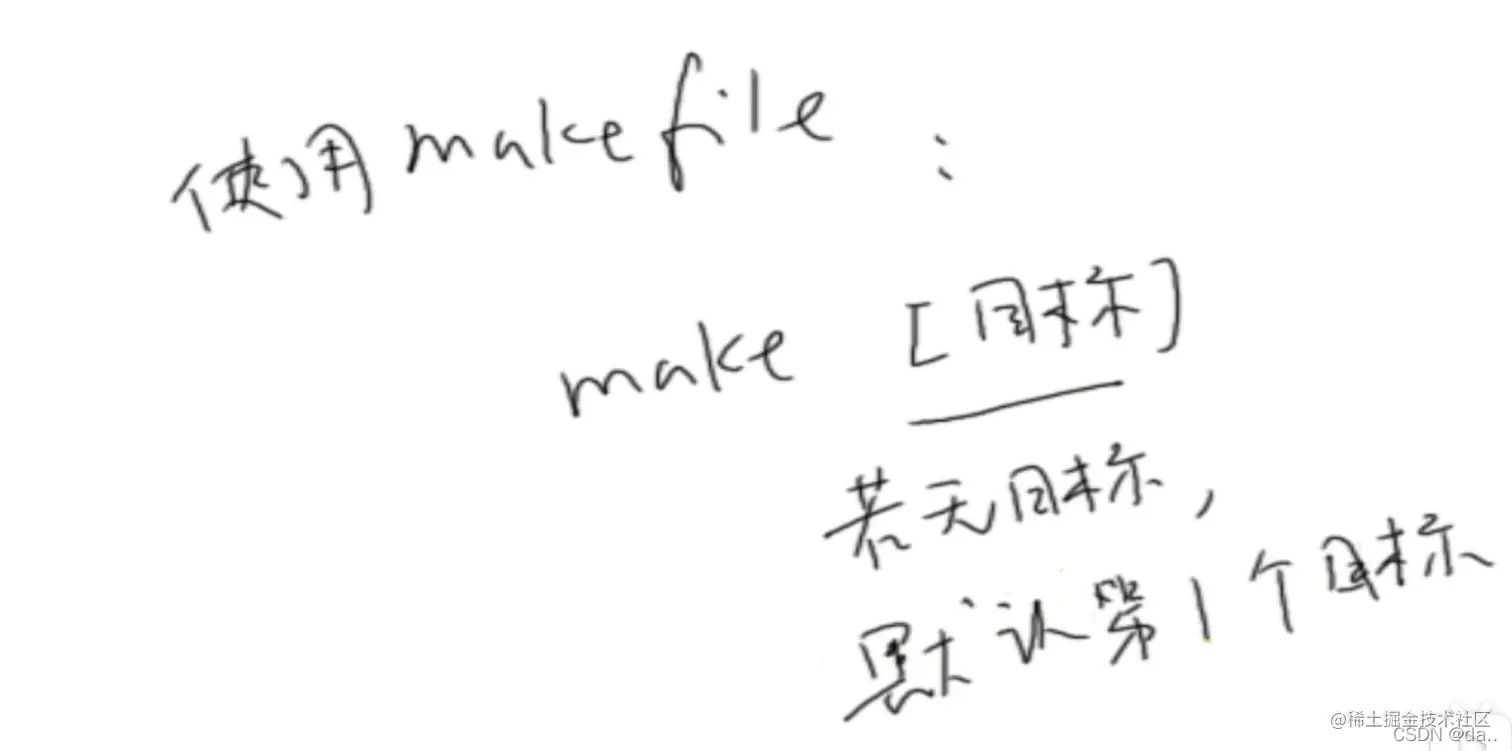 使用makefile:
make [目标]
若无目标,
默认第1个目标
@稀土掘金技术社区
CSDN @da..